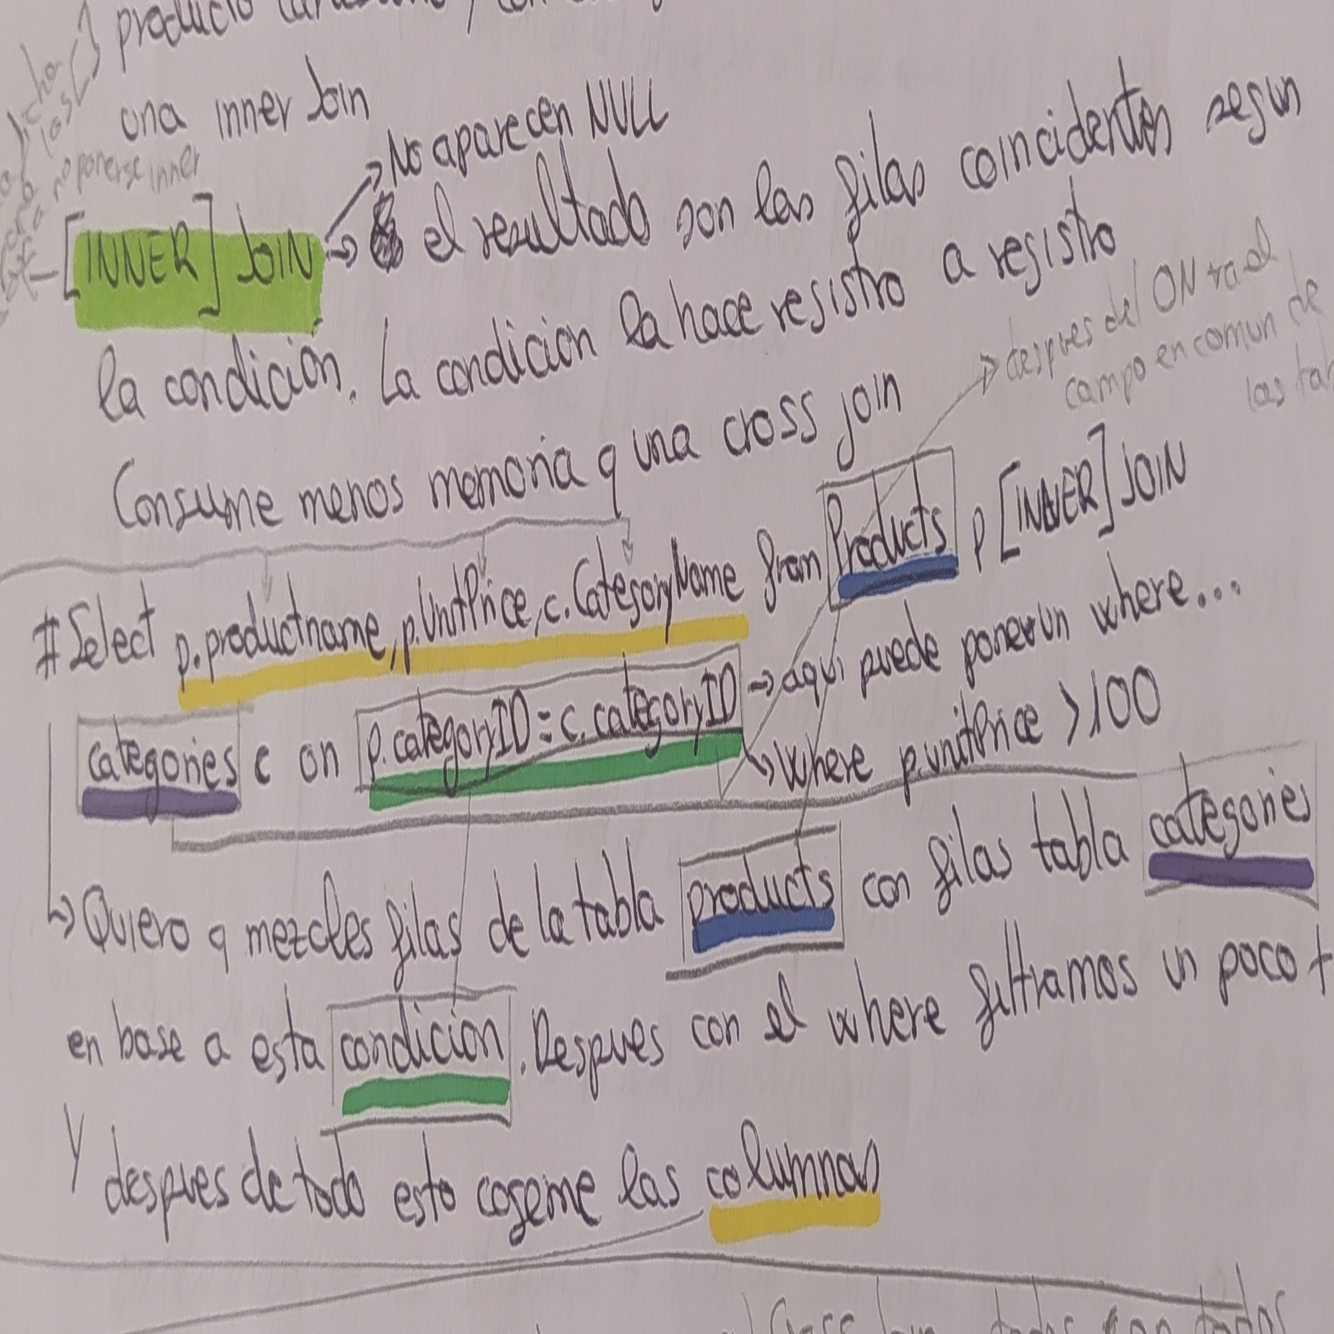 producto
una inner Join
no ponerse inner
→ No aparecen NULL
- [INNER] JOIN → el resultado son las filas coincidentes segun
la condición. La condición la hace registro a registro
→ despues del ON va el
campo en comun de
las
Consume menos memoria q una cross join
#Select p.productname, p.UnitPrice, c.CategoryName from Products p [INNER] JOIN
categories c on p.categoryID = c.categoryID → aqui puede poner un where...
↳ Where p.unitPrice > 100
↳ Quiero q mezcles filas de la tabla products con filas tabla categories
en base a esta condición. Despues con el where filtramos un poco +
Y despues de todo esto cogeme las columnas